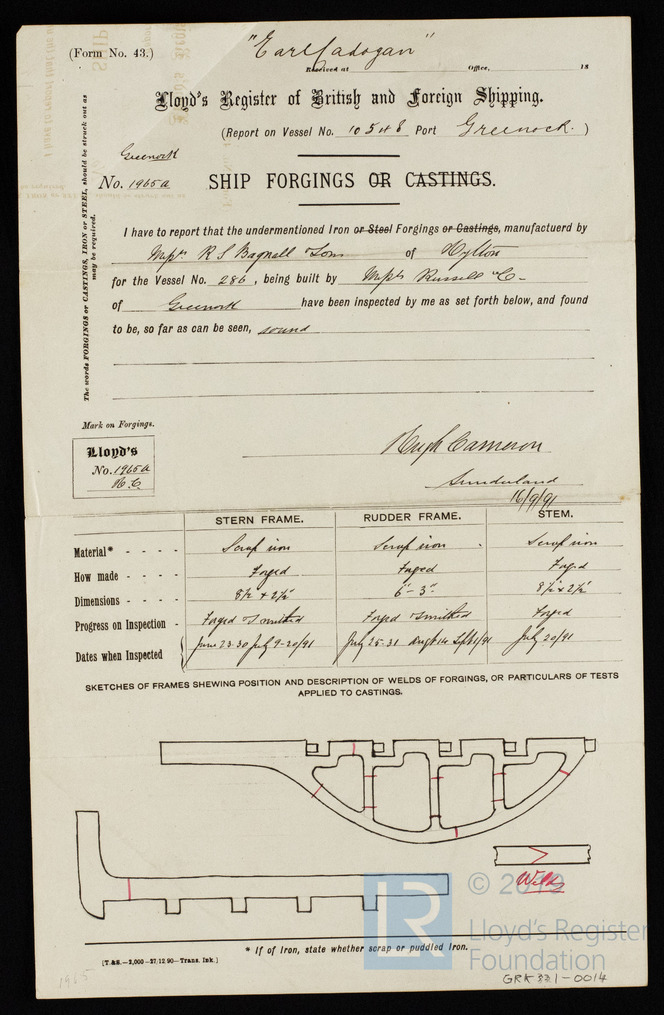 "Earl Cadogan"
(Form No. 43.)
Received at Office, 18
Lloyd's Register of British and Foreign Shipping.
(Report on Vessel No. 10548 Port Greenock.)
Greenock
No. 1965a SHIP FORGINGS OR CASTINGS.
The words FORGINGS or CASTINGS, IRON or STEEL, should be struck out as
may be required.
I have to report that the undermentioned Iron or Steel Forgings or Castings, manufactuerd by
Messrs R S Bagnall & Sons of Hylton
for the Vessel No. 286, being built by Messrs Russell & Co
of Greenock have been inspected by me as set forth below, and found
to be, so far as can be seen, sound
Mark on Forgings.
Lloyd's
No. 1965a
H.C.
Hugh Cameron
Sunderland
16/9/91
STERN FRAME. RUDDER FRAME. STEM.
Material* - - - - Scrap iron Scrap iron Scrap iron
How made - - - - Forged Forged Forged
Dimensions - - - - 8½ x 2½" 6" - 3" 8½" x 2½"
Progress on Inspection - Forged & smithed Forged & smithed Forged
Dates when Inspected June 23-30 July 9-20/91 July 25-31 Augt 14 Sept 1/91 July 20/91
SKETCHES OF FRAMES SHEWING POSITION AND DESCRIPTION OF WELDS OF FORGINGS, OR PARTICULARS OF TESTS
APPLIED TO CASTINGS.
Welds
* If of Iron, state whether scrap or puddled Iron.
[T.&S.—2,000—27/12/90—Trans. Ink.]
LR © 2019
Lloyd's Register
Foundation
1965
GRK331-0014